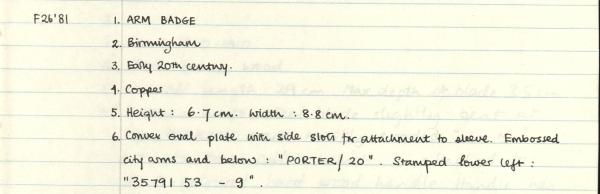 F26'81 1. ARM BADGE
2. Birmingham
3. Early 20th century.
4. Copper
5. Height: 6.7 cm. Width: 8.8 cm.
6. Convex oval plate with side slots for attachment to sleeve. Embossed
city arms and below: "PORTER/ 20". Stamped lower left:
"35791 53 - 9".